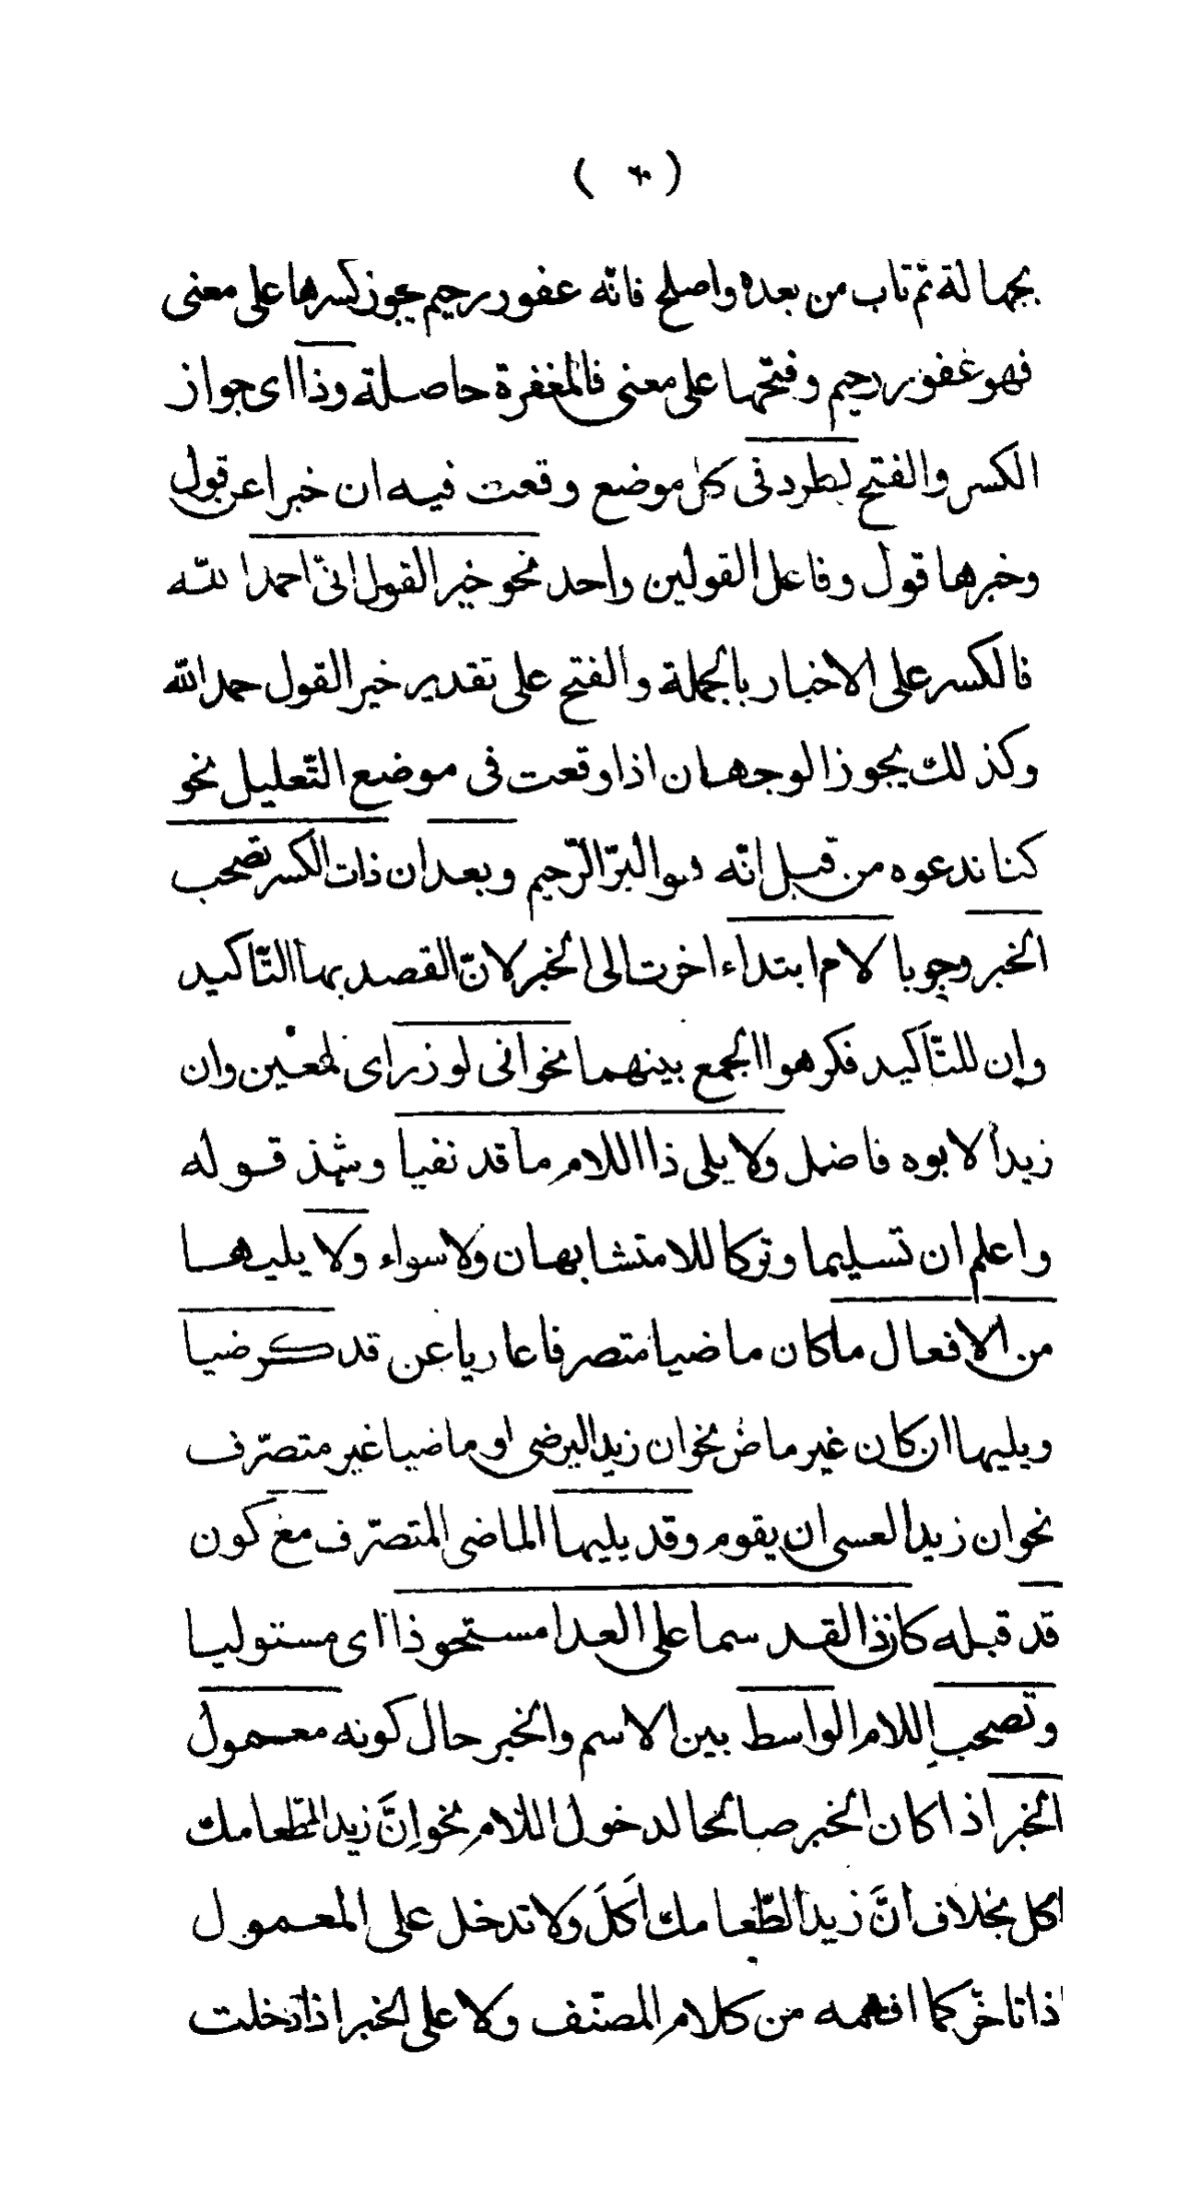 بجهالة ثم تاب من بعده واصلح فانّه غفور رحيم يجوز كسرها على معنى
فهو غفور رحيم وفتحها على معنى فالمغفرة حاصلة وذا اى جواز
الكسر والفتح يطرد فى كل موضع وقعت فيه ان خبرا عن قول
وخبرها قول وفاعل القولين واحد نحو خير القول انّى احمد اللّه
فالكسر على الاخبار بالجملة والفتح على تقدير خير القول حمد اللّه
وكذلك يجوز الوجهان اذا وقعت فى موضع التّعليل نحو
كنا ندعوه من قبل انّه هو البرّ الرّحيم وبعد ان ذات الكسر تصحب
الخبر وجوبا لام ابتداء اخرت الى الخبر لانّ القصد بها التّاكيد
وإن للتّاكيد فكرهوا الجمع بينهما نحو انى لوزر اى لمعين وان
زيدا لابوه فاضل ولا يلى ذا اللام ما قد نفيا وشذ قوله
واعلم ان تسليما وتركا للا متشابهان ولا سواء ولا يليها
من الافعال ما كان ماضيا متصرفا عاريا عن قد كرضيا
ويليها ان كان غير ماض نحو ان زيدا ليرضى او ماضيا غير متصرّف
نحو ان زيدا لعسى ان يقوم وقد يليها الماضى المتصرّف مع كون
قد قبله كانّ ذا لقد سما على العدا مستحوذا اى مستوليا
وتصحب اللام الواسط بين الاسم والخبر حال كونه معمول
الخبر اذا كان الخبر صالحا لدخول اللام نحو إنَّ زيدا لطعامك
اكل بخلاف انَّ زيدا لطّعامك اَكَلَ ولا تدخل على المعمول
اذا تاخّر كما افهمه من كلام المصنّف ولا على الخبر اذا دخلت